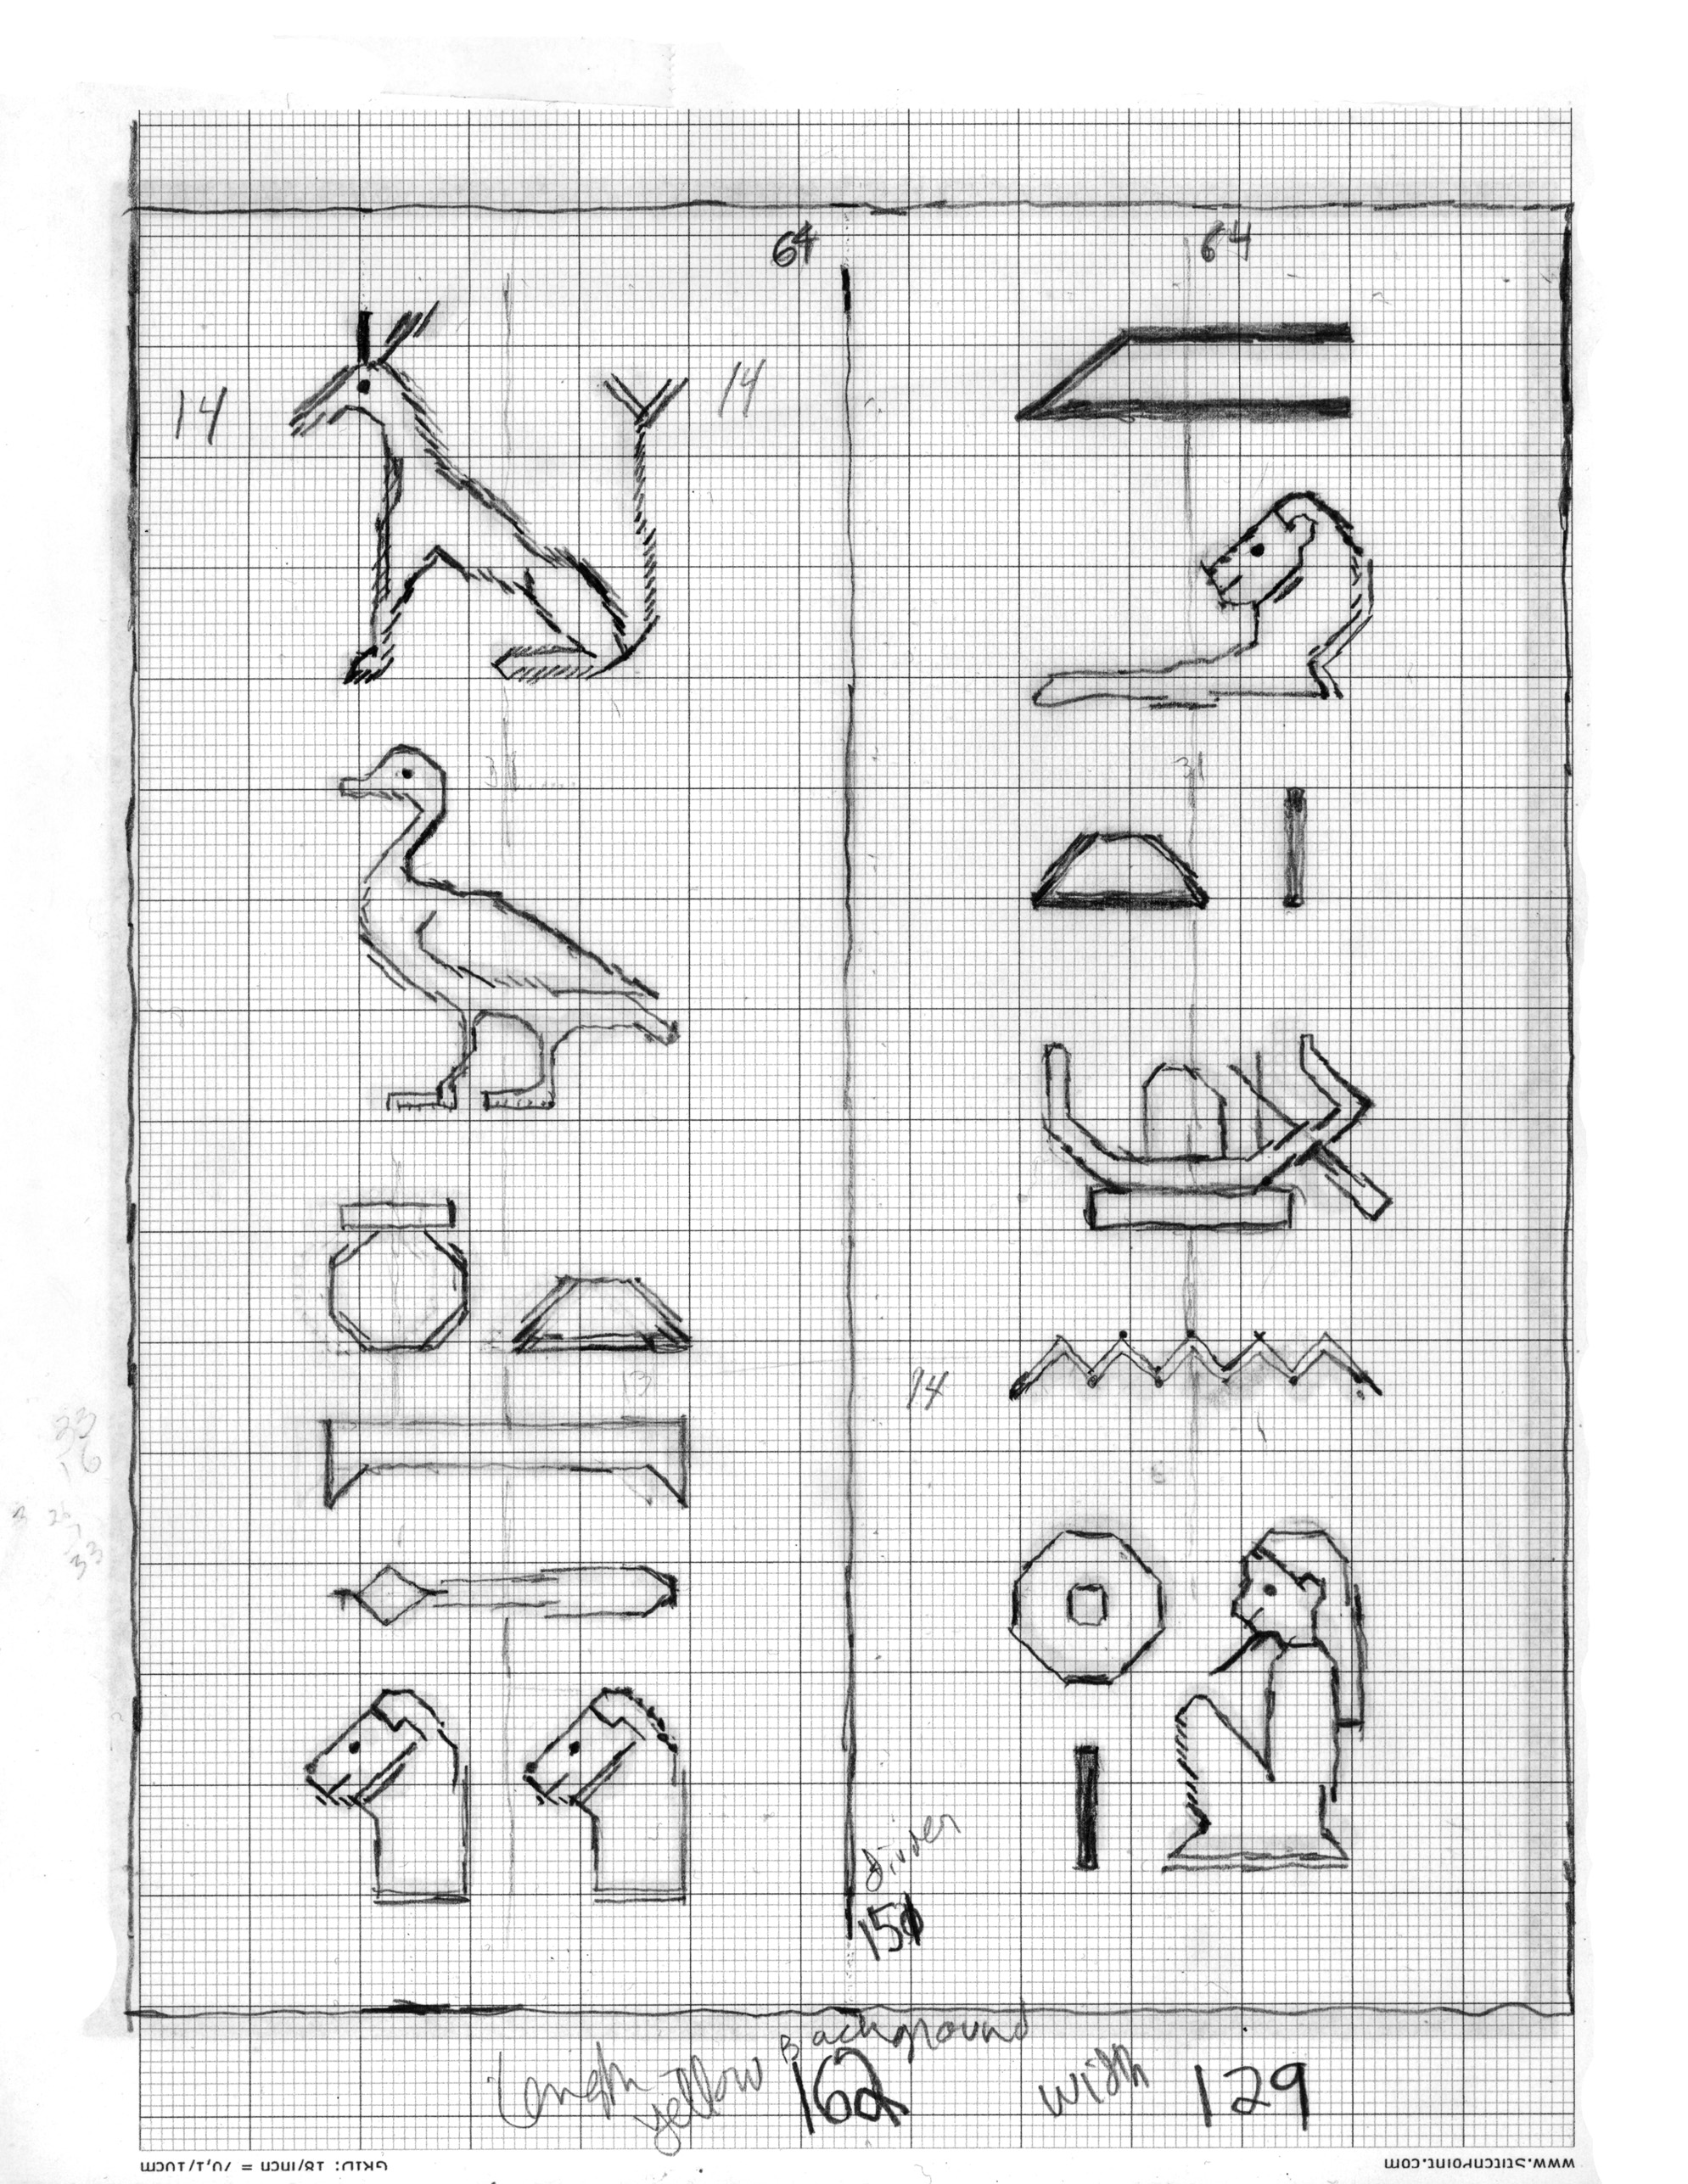 64
64
14
14
31
31
13
14
33
16
3 26
7
33
Divider
151
Background
Length 162 Width 129
yellow
GRID: 18/inch = 70,1/10cm
www.Stitchpoint.com